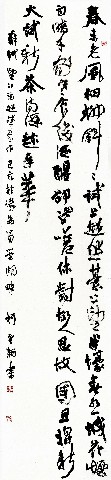 春未老風細柳斜斜試上超然臺上看半壕春水一城花煙
雨暗千家寒食後酒醒却咨嗟休對故人思故國且將新
火試新茶詩酒趁年華
蘇軾望江南超然臺作